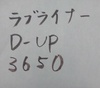 ラブライナー
D-UP
3650